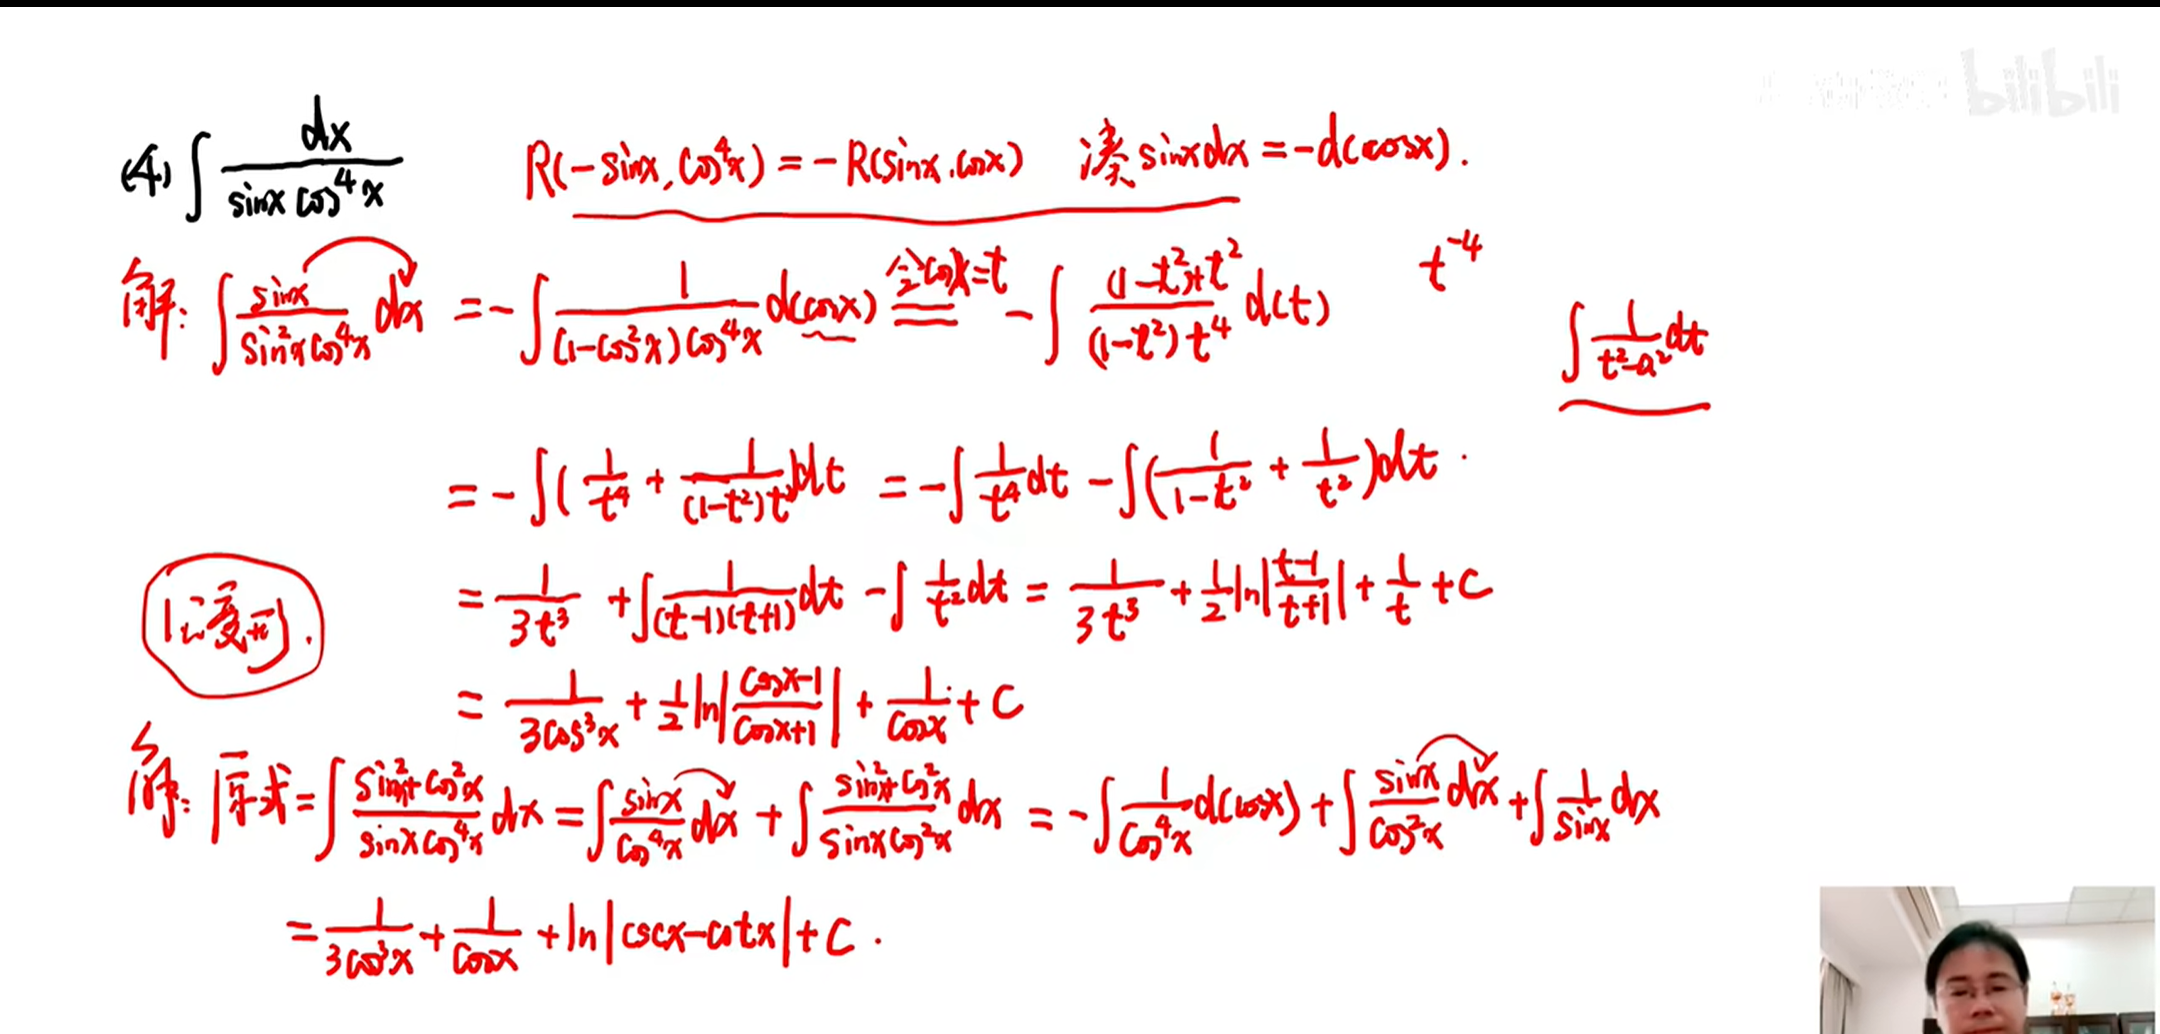 bilibili
(4) ∫ dx/(sinx cos⁴x)    R(-sinx, cos⁴x) = -R(sinx, cosx)    凑 sinxdx = -d(cosx).
解: ∫ sinx/(sin²x cos⁴x) dx = -∫ 1/((1-cos²x)cos⁴x) d(cosx) 令cosx=t == -∫ ((1-t²)+t²)/((1-t²)t⁴) d(t)    t⁻⁴
∫ 1/(t²-a²) dt
= -∫( 1/t⁴ + 1/((1-t²)t²) )dt = -∫ 1/t⁴ dt - ∫( 1/(1-t²) + 1/t² )dt.
= 1/(3t³) + ∫ 1/((t-1)(t+1)) dt - ∫ 1/t² dt = 1/(3t³) + 1/2 ln|(t-1)/(t+1)| + 1/t + C
= 1/(3cos³x) + 1/2 ln|(cosx-1)/(cosx+1)| + 1/cosx + C
解: 原式 = ∫ (sin²x+cos²x)/(sinx cos⁴x) dx = ∫ sinx/cos⁴x dx + ∫ (sin²x+cos²x)/(sinx cos²x) dx = -∫ 1/cos⁴x d(cosx) + ∫ sinx/cos²x dx + ∫ 1/sinx dx
= 1/(3cos³x) + 1/cosx + ln|cscx-cotx| + C.